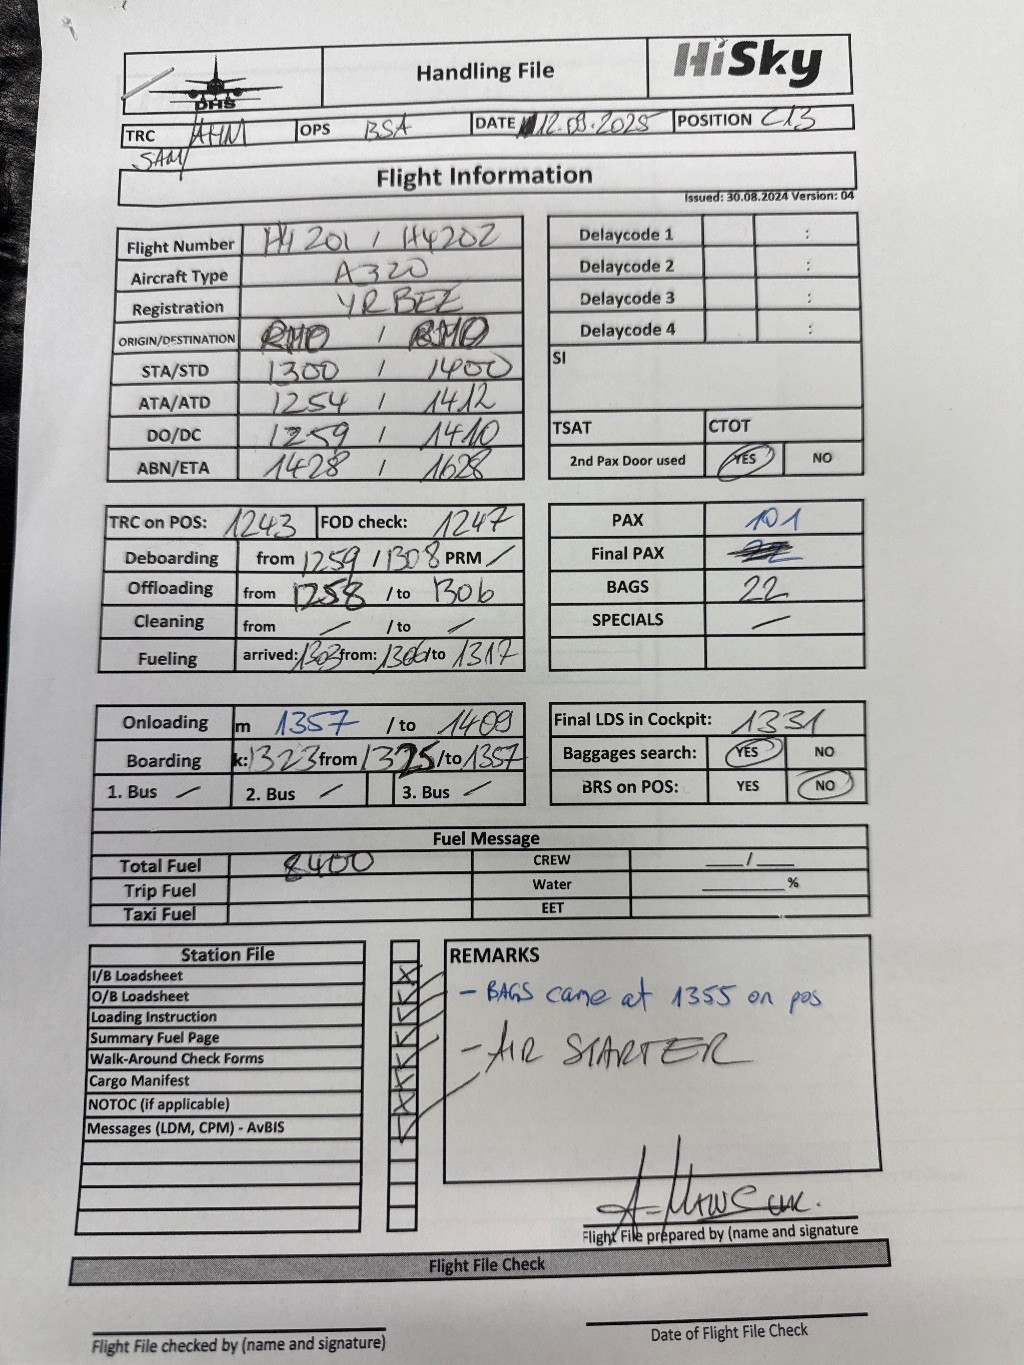 DHS
Handling File
HiSky
TRC AHM SAM OPS BSA DATE 12.09.2025 POSITION C13
Flight Information
Issued: 30.08.2024 Version: 04
Flight Number H4201 / H4202
Aircraft Type A320
Registration YRBEE
ORIGIN/DESTINATION RMO / RMO
STA/STD 1300 / 1400
ATA/ATD 1254 / 1412
DO/DC 1259 / 1410
ABN/ETA 1428 / 1628
Delaycode 1 :
Delaycode 2 :
Delaycode 3 :
Delaycode 4 :
SI
TSAT CTOT
2nd Pax Door used YES NO
TRC on POS: 1243 FOD check: 1247
Deboarding from 1259 / 1308 PRM /
Offloading from 1258 / to 1306
Cleaning from — / to —
Fueling arrived: 1303 from: 1306 /to 1317
PAX 101
Final PAX
BAGS 22
SPECIALS —
Onloading m 1357 / to 1409
Boarding k: 1323 from 1325 /to 1357
1. Bus — 2. Bus — 3. Bus —
Final LDS in Cockpit: 1331
Baggages search: YES NO
BRS on POS: YES NO
Fuel Message
Total Fuel 8400 CREW ____/____
Trip Fuel Water ________%
Taxi Fuel EET
Station File
I/B Loadsheet
O/B Loadsheet
Loading Instruction
Summary Fuel Page
Walk-Around Check Forms
Cargo Manifest
NOTOC (if applicable)
Messages (LDM, CPM) - AvBIS
REMARKS
- BAGS came at 1355 on pos
- AIR STARTER
Flight File prepared by (name and signature
Flight File Check
Flight File checked by (name and signature)
Date of Flight File Check